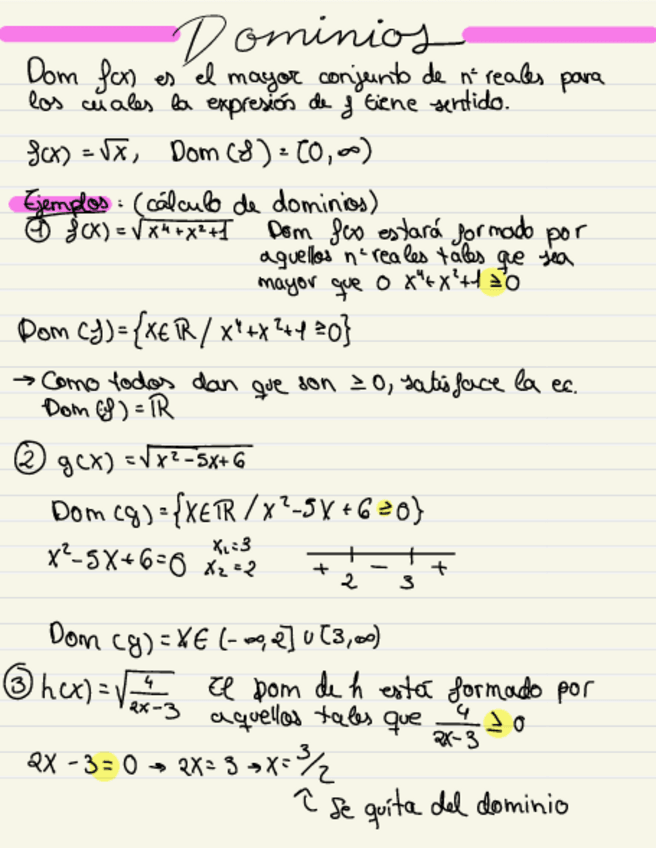 Dominios
Dom f(x) es el mayor conjunto de nº reales para
los cuales la expresión de f tiene sentido.
f(x) = √x, Dom (f) = [0, ∞)
Ejemplos: (cálculo de dominios)
① f(x) = √(x⁴+x²+1) Dom f(x) estará formado por
aquellos nº reales tales que sea
mayor que 0 x⁴+x²+1 ≥ 0
Dom (f) = {x ∈ ℝ / x⁴+x²+1 ≥ 0}
→ Como todos dan que son ≥ 0, satisface la ec.
Dom (f) = ℝ
② g(x) = √(x²-5x+6)
Dom (g) = {x ∈ ℝ / x²-5x+6 ≥ 0}
x²-5x+6=0 x₁=3 x₂=2 + 2 - 3 +
Dom (g) = x ∈ (-∞, 2] ∪ [3, ∞)
③ h(x) = √(4/(2x-3)) El Dom de h está formado por
aquellos tales que 4/(2x-3) ≥ 0
2x - 3 = 0 → 2x = 3 → x = 3/2
↑ Se quita del dominio